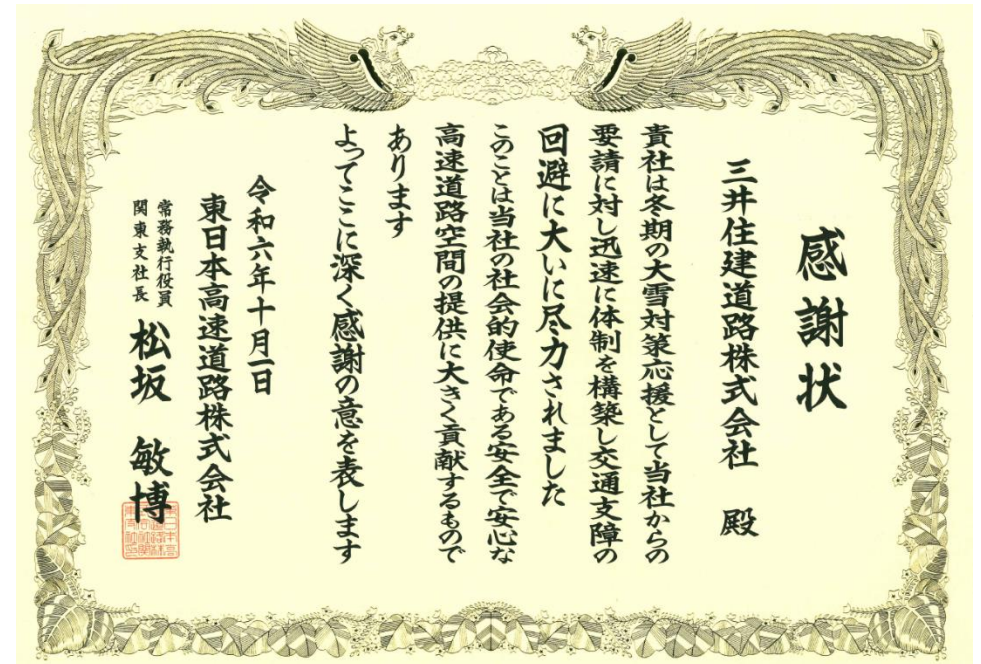 感謝状
三井住建道路株式会社 殿
貴社は冬期の大雪対策応援として当社からの
要請に対し迅速に体制を構築し交通支障の
回避に大いに尽力されました
このことは当社の社会的使命である安全で安心な
高速道路空間の提供に大きく貢献するもので
あります
よってここに深く感謝の意を表します
令和六年十月一日
東日本高速道路株式会社
常務執行役員
関東支社長
松坂 敏博